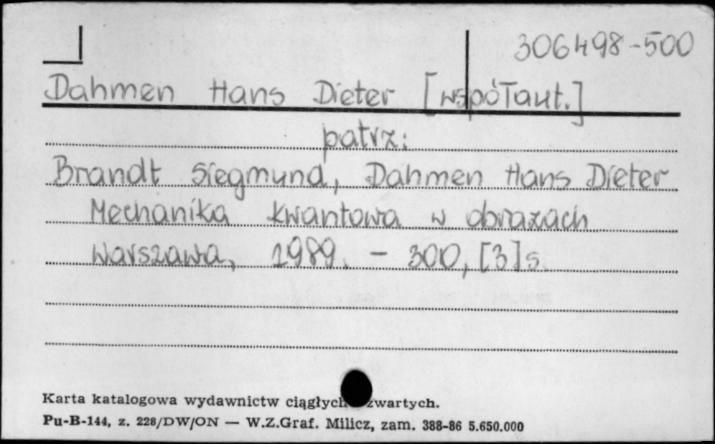 306498-500
Dahmen Hans Dieter [współaut.]
patrz:
Brandt Siegmund, Dahmen Hans Dieter
Mechanika kwantowa w obrazach
Warszawa, 1989. - 300, [3] s.
Karta katalogowa wydawnictw ciągłych zwartych.
Pu-B-144, z. 228/DW/ON — W.Z.Graf. Milicz, zam. 388-86 5.650.000